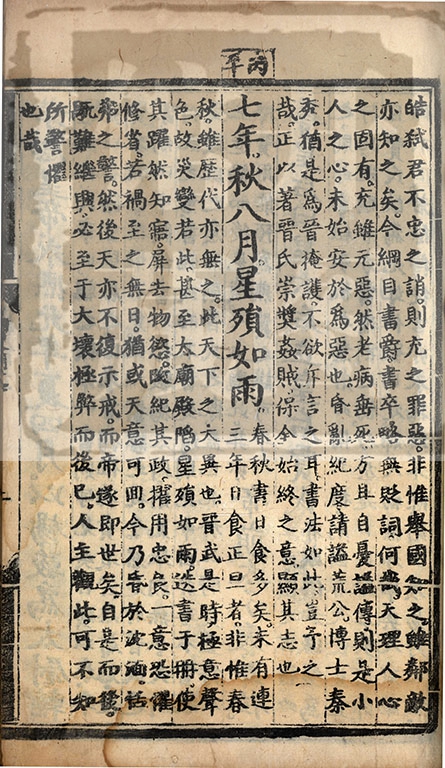 丙午
皓弑君不忠之誚則充之罪惡非惟舉國知之雖鄰敵
亦知之矣今綱目書爵書卒略無貶詞何哉天理人心
之固有充雖元惡然老病垂死方且自憂謚傳則是小
人之心未始安於爲惡也昏亂紀度請謚荒公博士秦
秀猶是爲晉掩護不欲斥言之耳書法如此豈予之
哉正以著晉氏崇奬姦賊保全始終之意顯其志也
七年秋八月星殞如雨
春秋書日食多矣未有連
三年日食正旦者非惟春
秋雖歷代亦無之此天下之大異也晉武是時極意聲
色故災變若此甚至大廟殿陷星殞如雨迭書于冊使
其躍然知寤屏去物慾改紀其政擢用忠良一意恐懼
修省若禍至之無日猶或天意可回今乃昏於沈湎恬
弗之警然後天亦不復示戒而帝遂即世矣自是而後
厥難繼興必至于大壞極弊而後已人主觀此可不知
所警懼
也哉